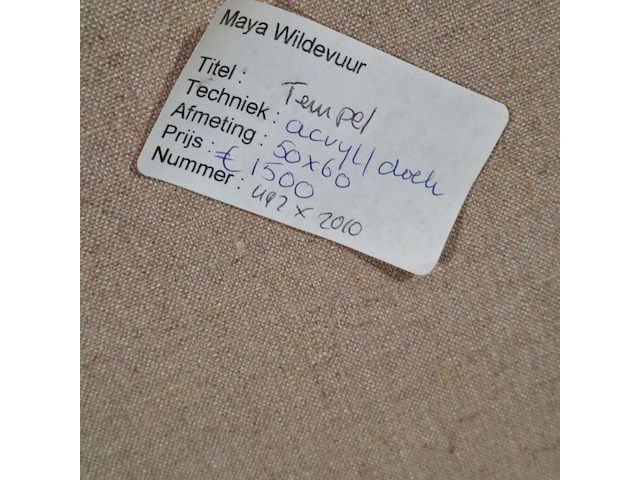 Maya Wildevuur
Titel : Tempel
Techniek : acryl/doek
Afmeting : 50x60
Prijs : € 1500
Nummer : 492 x 2010